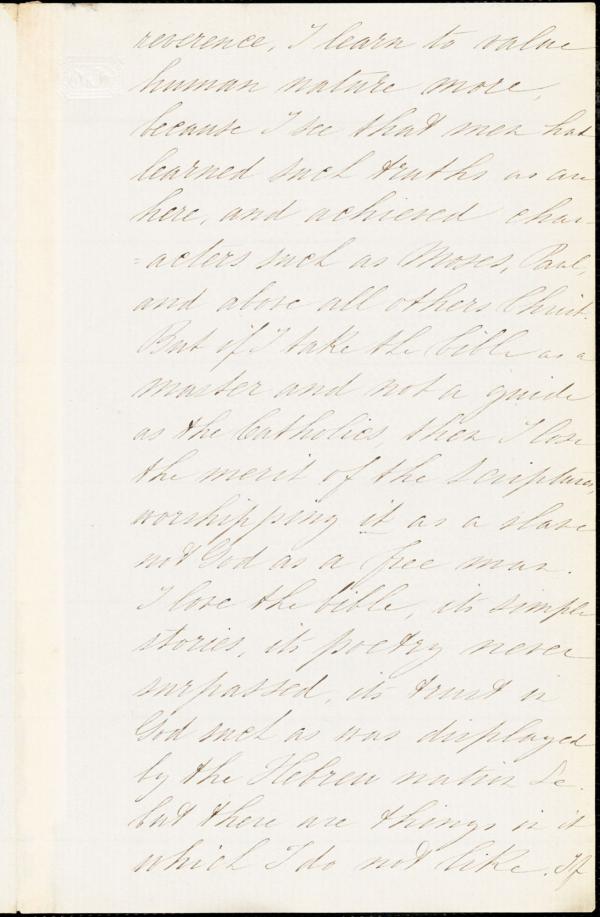 reverence, I learn to value
human nature more,
because I see that men had
learned such truths as are
here, and achieved char-
=acters such as Moses, Paul,
and above all others Christ.
But if I take the bible as a
master and not a guide
as the Catholics, then I lose
the merit of the Scriptures,
worshipping it as a slave
not God as a free man.
I love the bible, its simple
stories, its poetry never
surpassed, its trust in
God such as was displayed
by the Hebrew nation &c.
but there are things in it
which I do not like. If